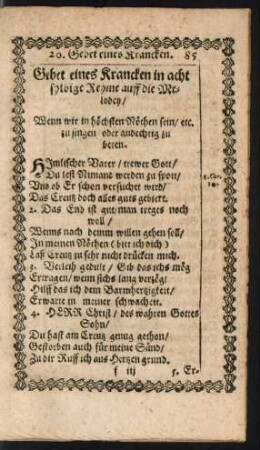 20. Gebet eines Krancken. 85
Gebet eines Krancken in acht
sylbige Reyme auff die Me-
lodey/
Wenn wir in höchsten Nöthen sein/ etc.
zu singen oder andechtig zu
beten.
HImlischer Vater/ trewer Gott/
Du lest Nimand werden zu spott/
Und ob Er schon versuchet wird/
Das Creutz doch alles guts gebiert.
2. Das End ist gut man treges noch
woll/
Wenns nach deinm willen gehen soll/
In meinen Nöthen (bitt ich dich)
Laß Creutz zu sehr nicht drücken mich.
3. Verleih gedult/ Gib das ichs mög
Ertragen/ wenn sichs lang verzög/
Hilff das ich dein Barmhertzigkeit/
Erwarte in meiner schwacheit.
4. HERR Christ/ des wahren Gottes
Sohn/
Du hast am Creutz genug gethon/
Gestorben auch für meine Sünd/
Zu dir Ruff ich aus Hertzen grund.
f iij 5. Er-